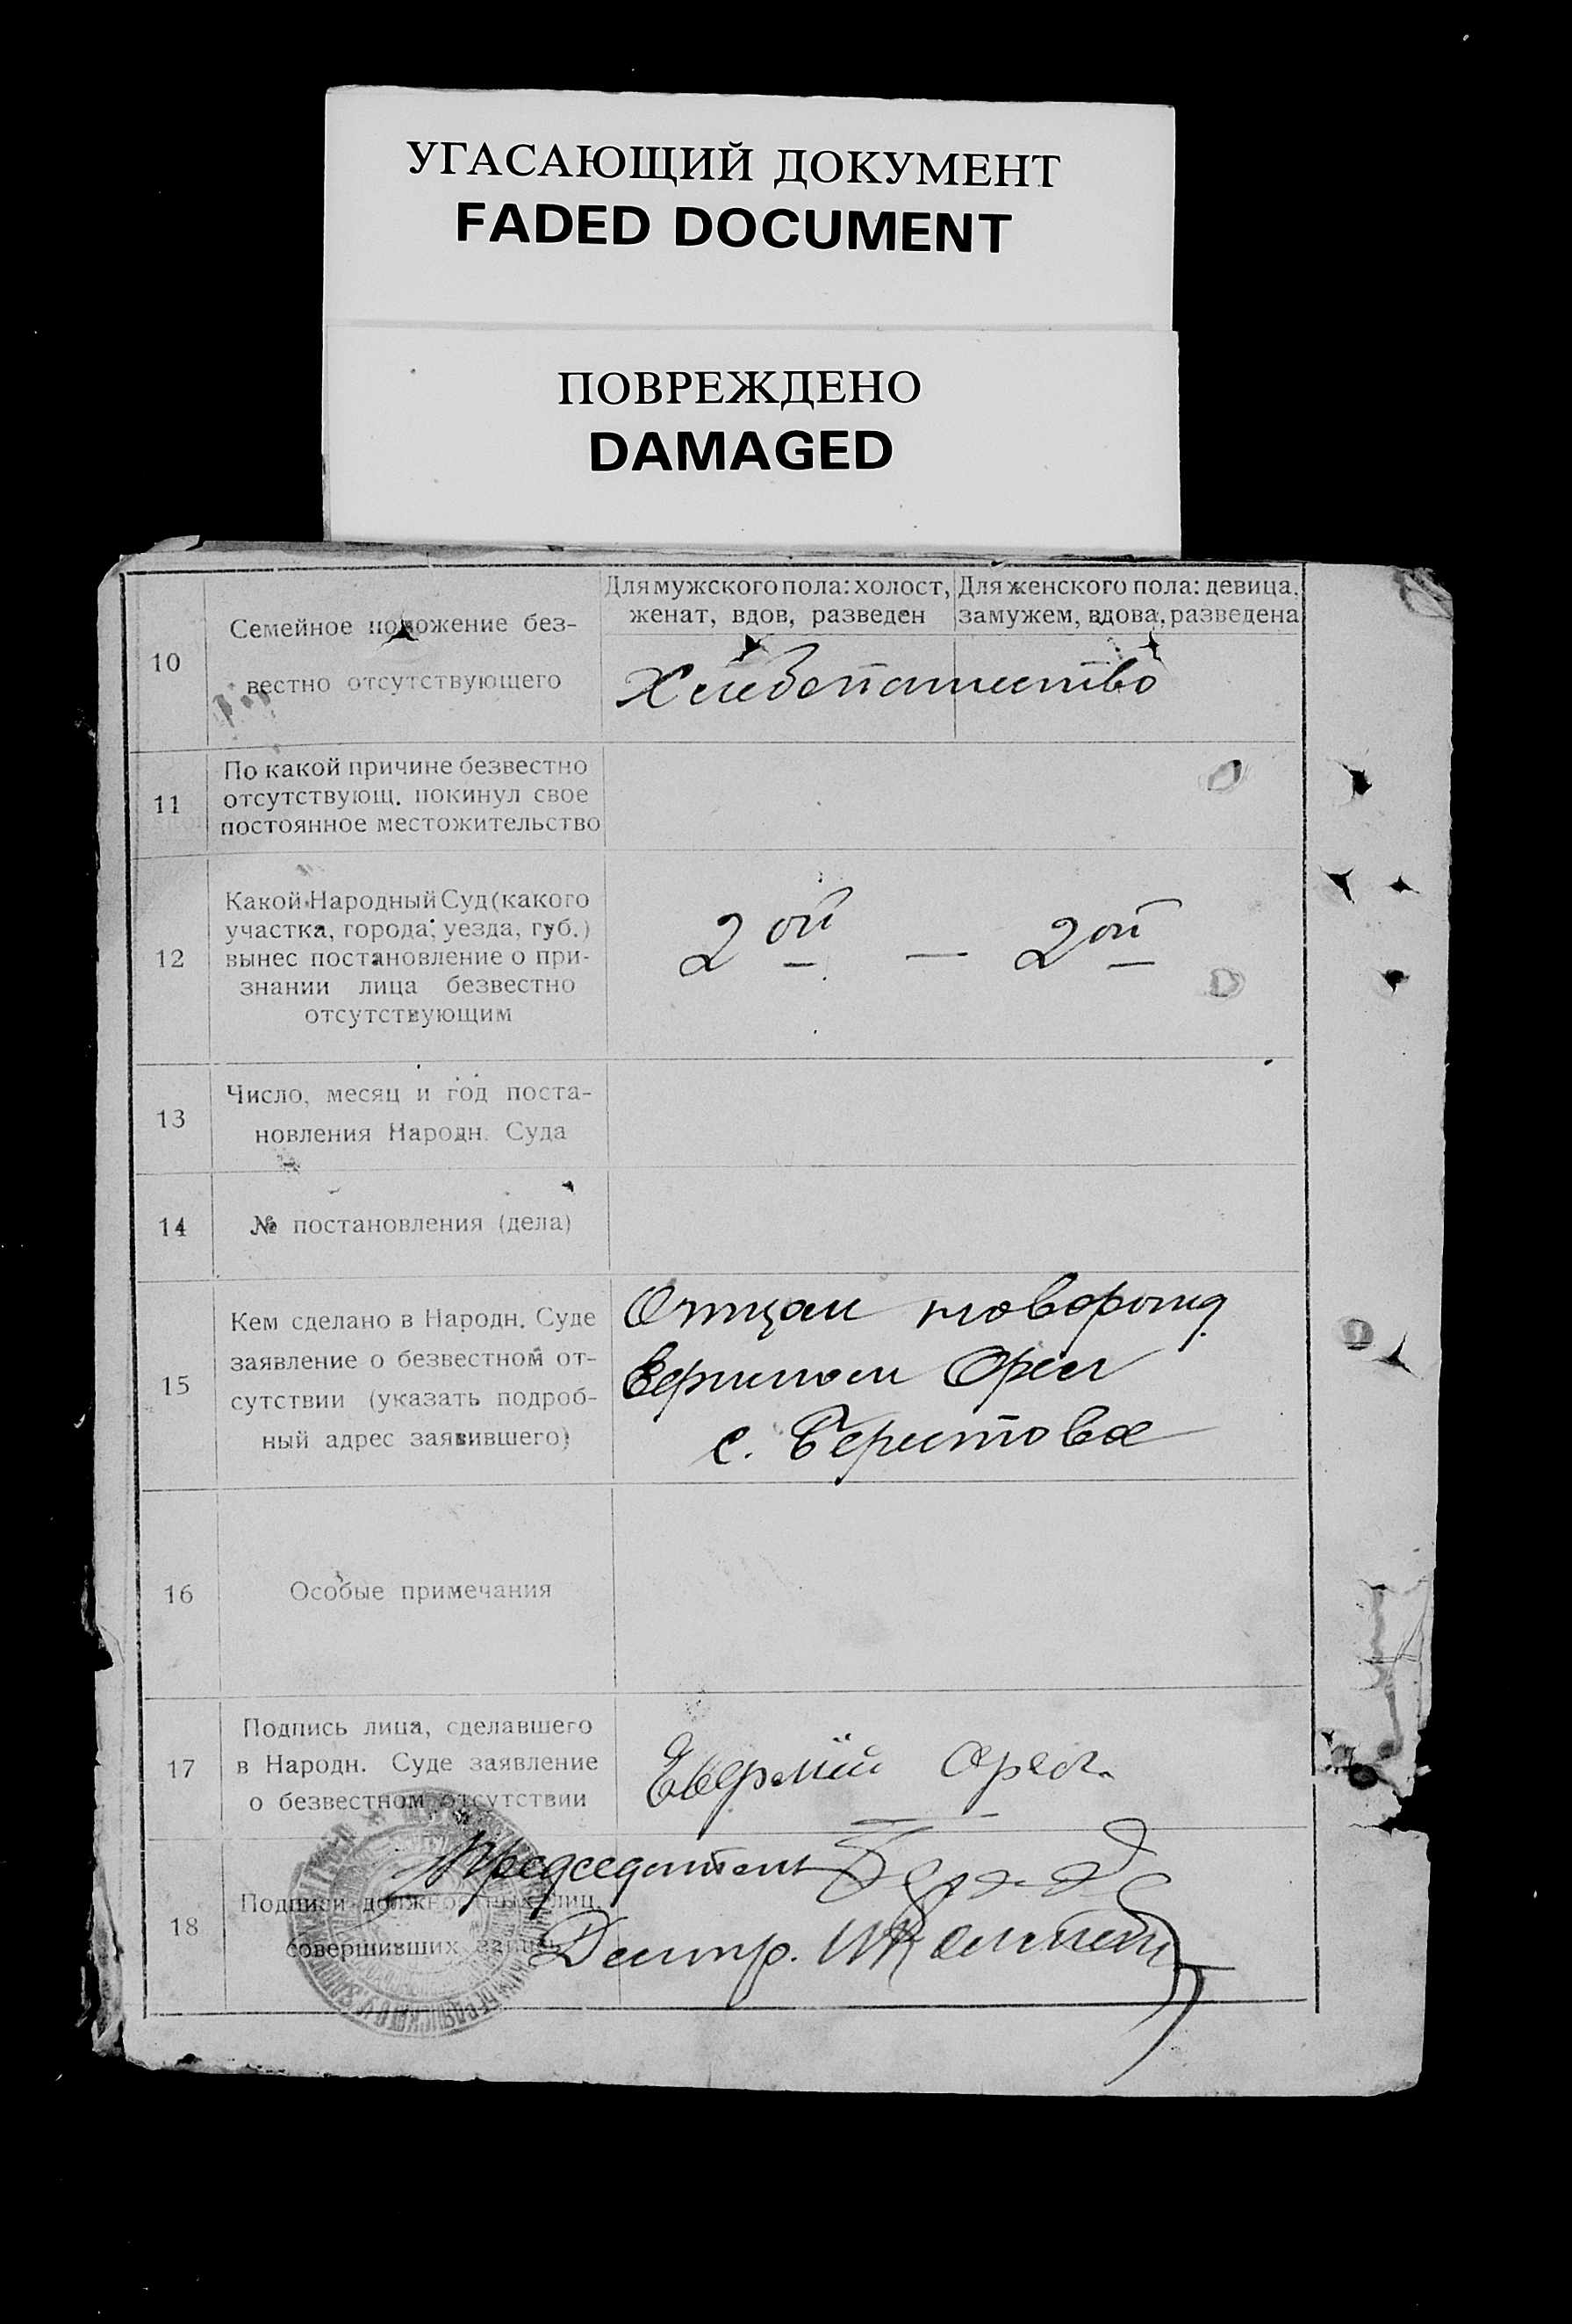 УГАСАЮЩИЙ ДОКУМЕНТ
FADED DOCUMENT
ПОВРЕЖДЕНО
DAMAGED
Для мужского пола: холост, женат, вдов, разведен
Для женского пола: девица, замужем, вдова, разведена
10
Семейное положение без-
вестно отсутствующего
Хлебопашество
11
По какой причине безвестно
отсутствующ. покинул свое
постоянное местожительство
12
Какой Народный Суд (какого
участка, города, уезда, губ.)
вынес постановление о при-
знании лица безвестно
отсутствующим
2ой — 2ой
13
Число, месяц и год поста-
новления Народн. Суда
14
№ постановления (дела)
15
Кем сделано в Народн. Суде
заявление о безвестном от-
сутствии (указать подроб-
ный адрес заявившего)
Отцом
Орел
с. Берестове
16
Особые примечания
17
Подпись лица, сделавшего
в Народн. Суде заявление
о безвестном отсутствии
Орел
18
Подписи должностных лиц,
совершивших
Председатель